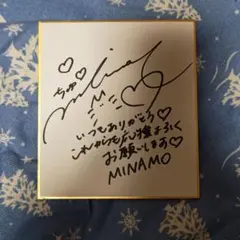 ちゅ♡
いつもありがとう♡
これからも応援よろしく
お願いします♡
MINAMO